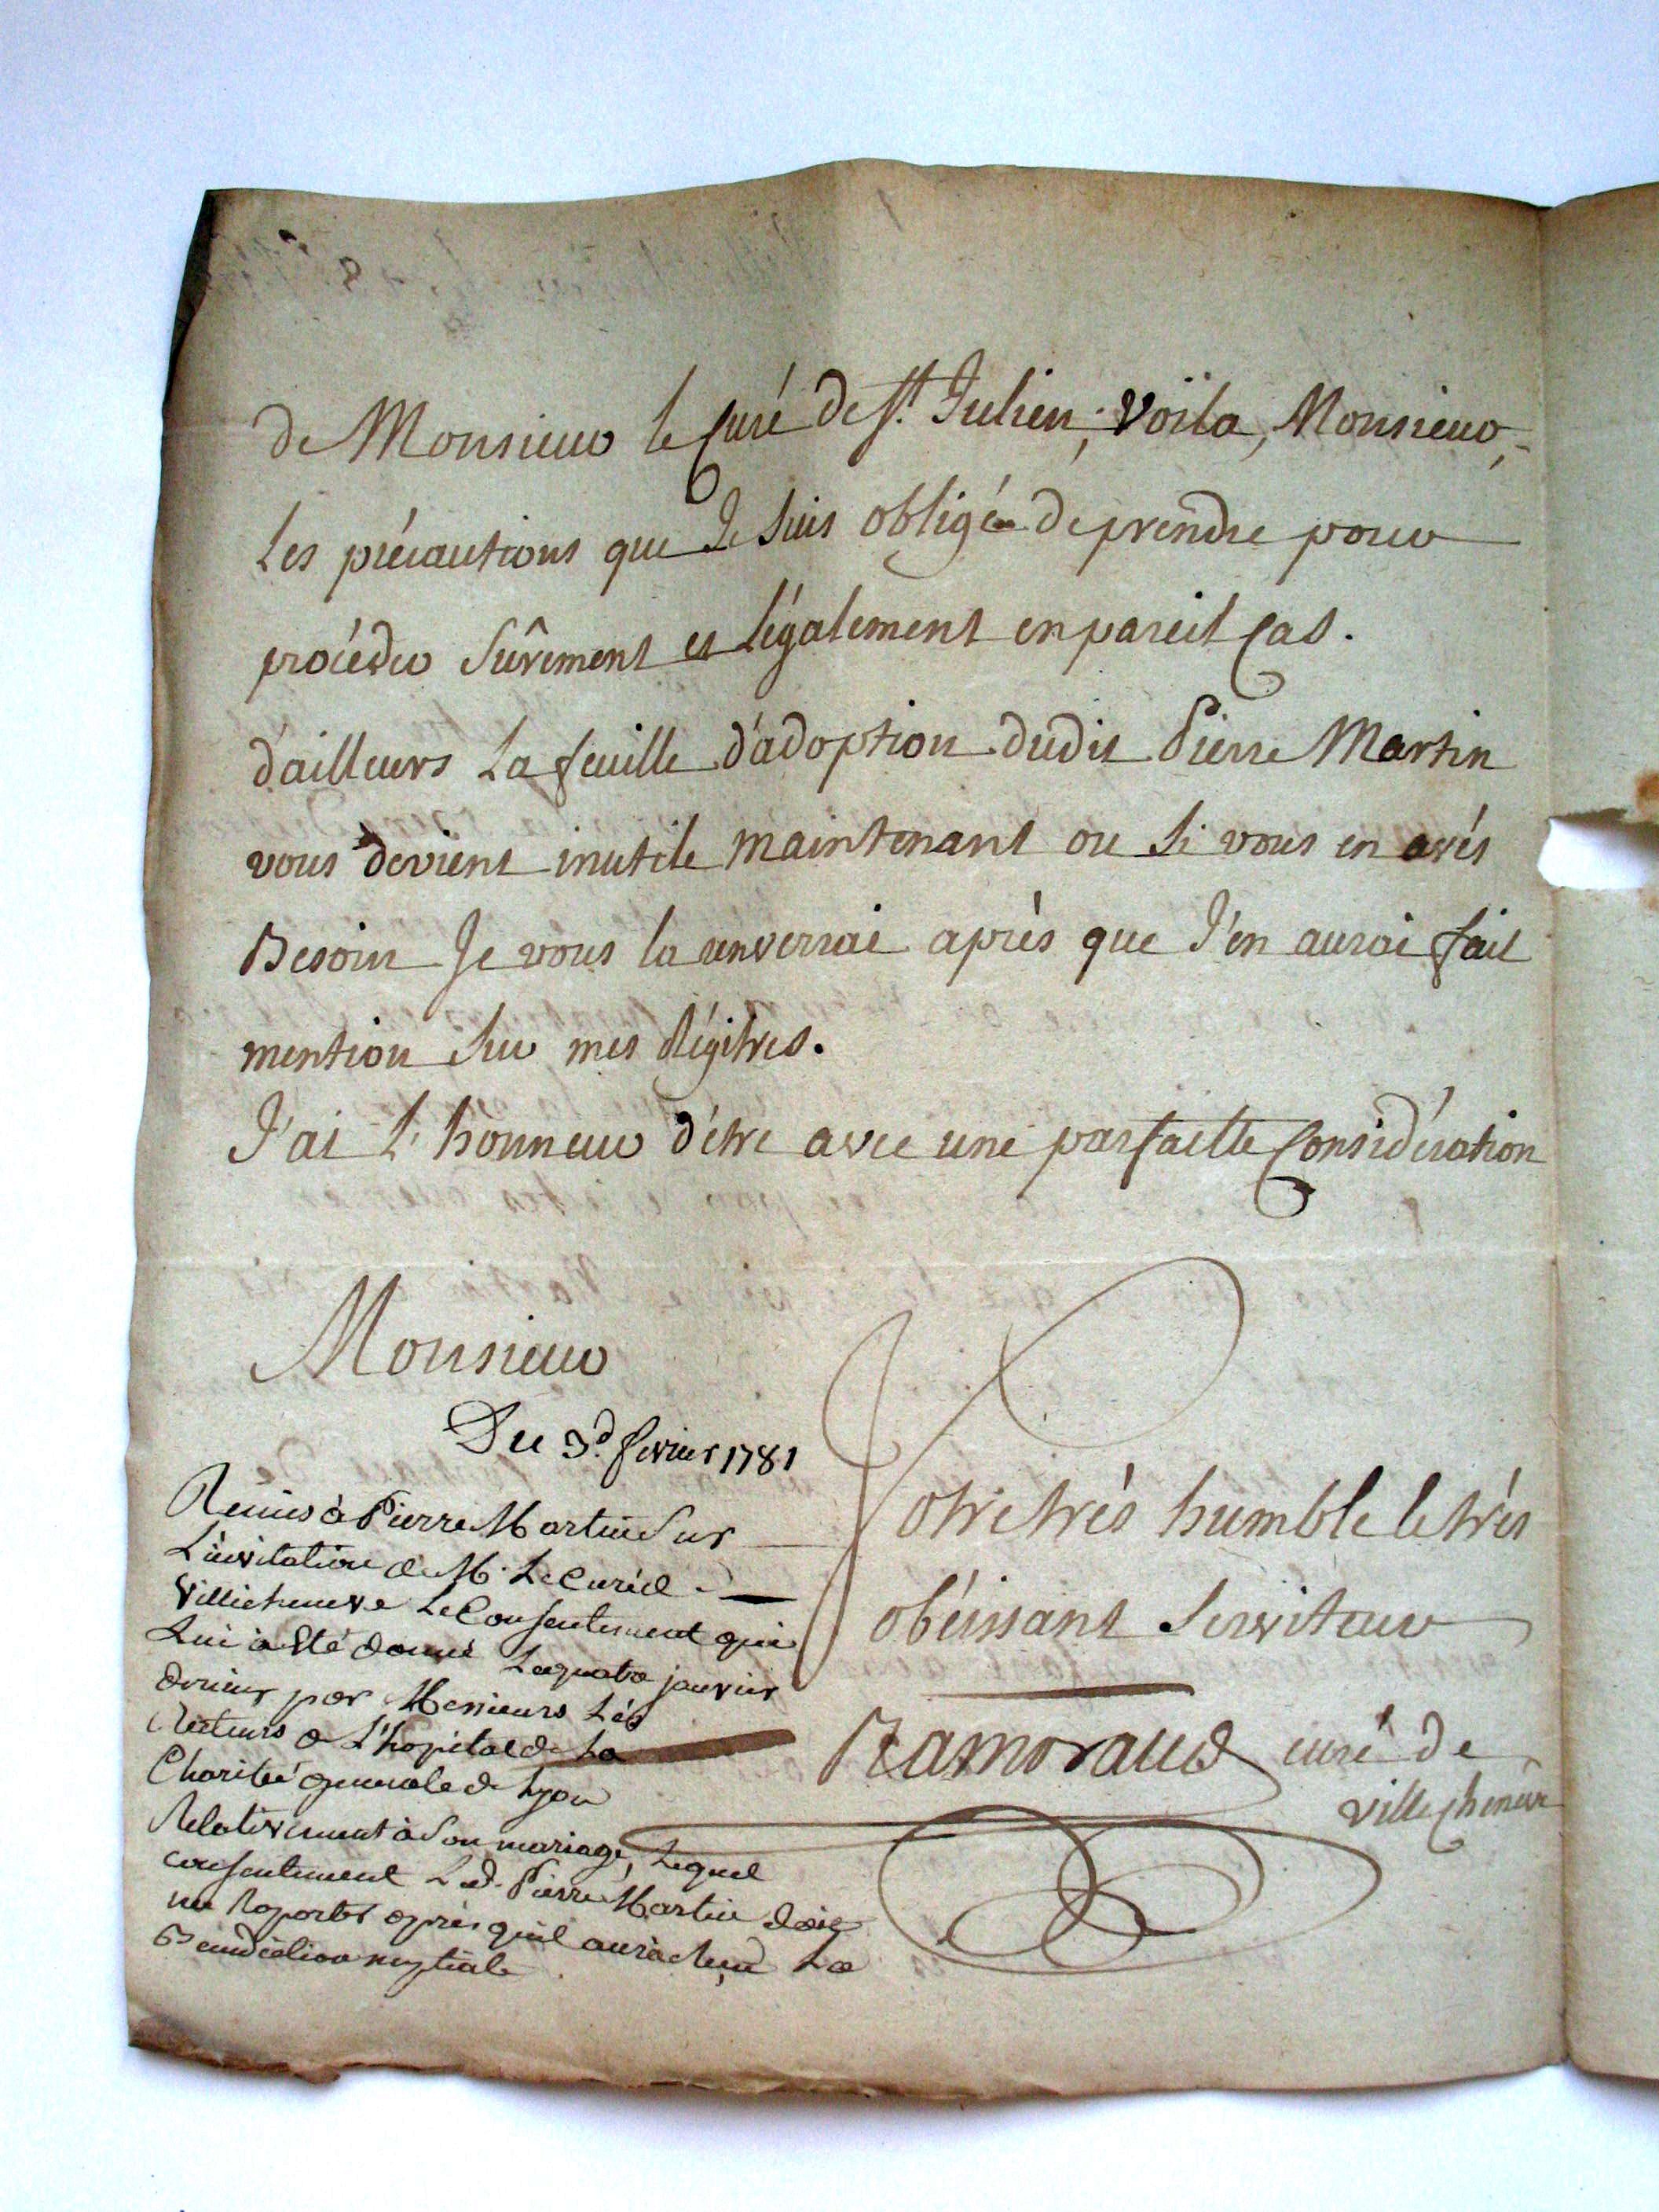 de Monsieur le Curé de St. Julien; Voïla, Monsieur,
les précautions que Je suis obligé de prendre pour
procéder sûrement et légalement en pareil Cas.
d'ailleurs la feuille d'adoption dudit Pierre Martin
vous devient inutile maintenant ou si vous en avés
Besoin Je vous la renverrai après que J'en aurai fait
mention sur mes Régitres.
J'ai l'honneur d'être avec une parfaitte Considération
Monsieur
Votre très humble et très
obéissant serviteur
Ramoraud curé de
ville Cheneve
Du 3d. fevrier 1781
Remis à Pierre Martin Sur
L'invitation de M. Le Curé de
Villecheneve Le Consentement qui
Lui à été donné Le quatre janvier
dernier par Messieurs Les
Recteurs de L'hopital de La
Charité generale de Lyon
Relativement à Son mariage, Lequel
consentement Led. Pierre Martin doit
me Raporter après quil aura Reçu La
Benediction nuptiale